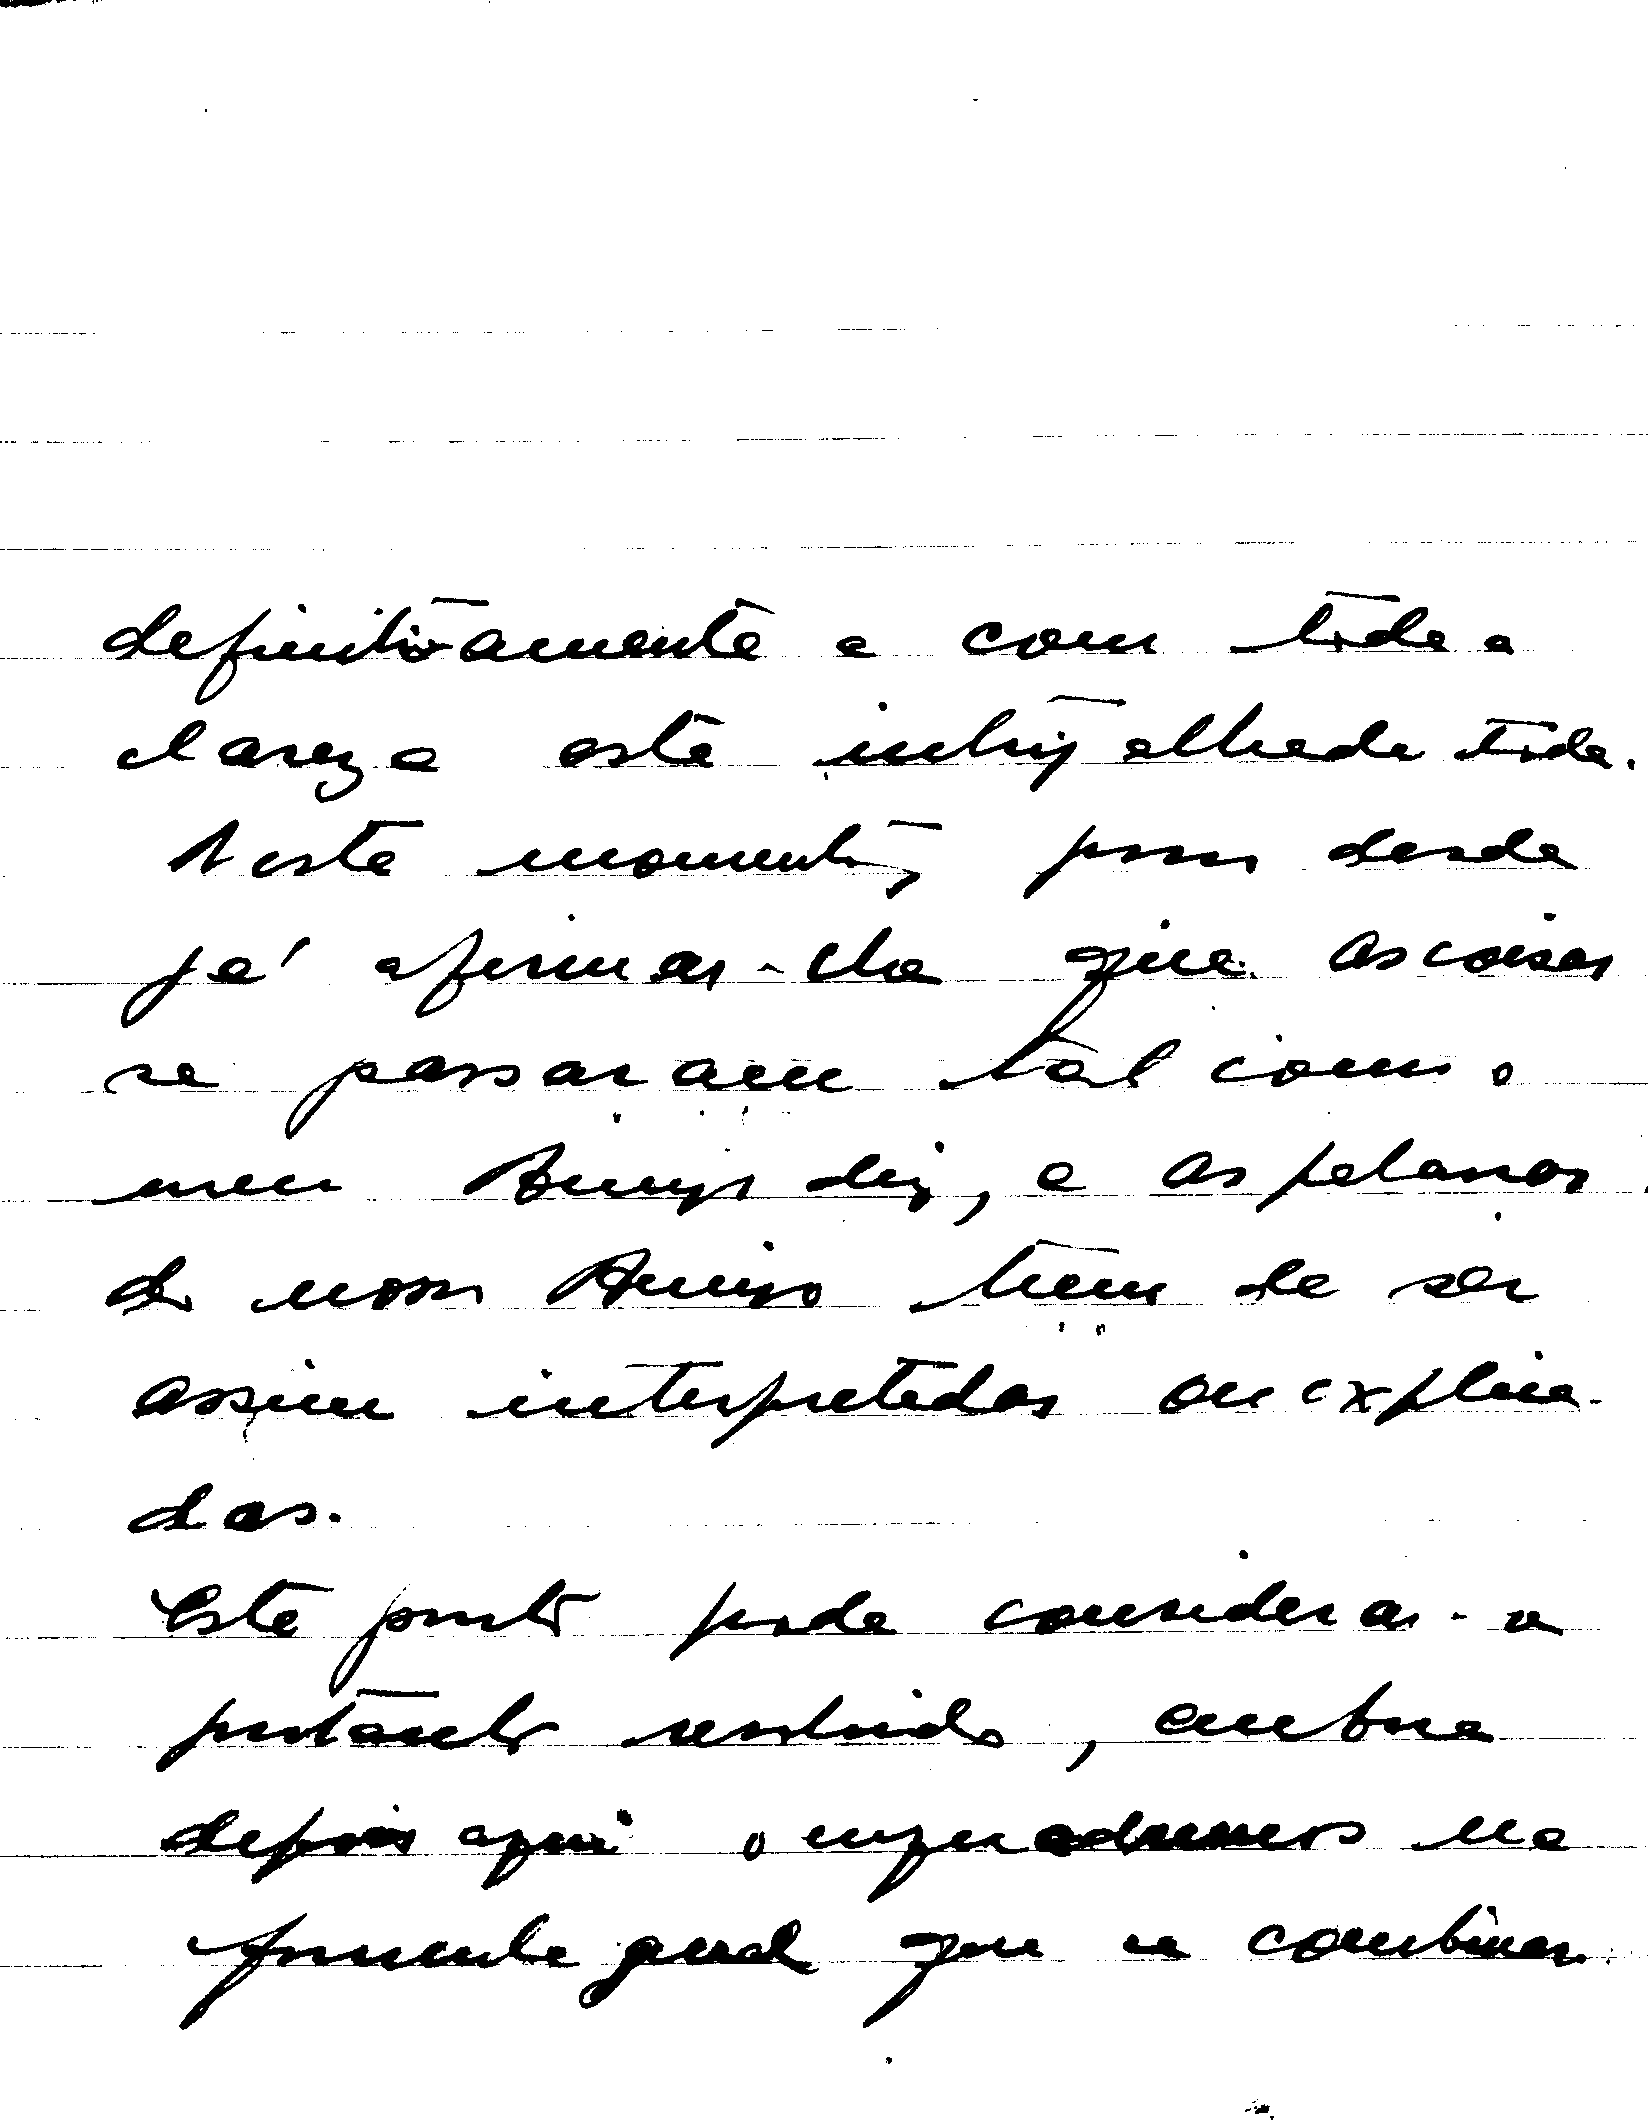 definitivamente e com toda a
clareza esta intrigalhada toda.
Neste momento, posso desde
já afirmar-lhe que as coisas
se passaram tal como o
meu Amigo diz, e as palavras
do nosso Amigo têm de ser
assim interpretadas ou explica-
das.
Este ponto pode considerar-se
portanto resolvido, embora
depois aqui o enquadremos na
fórmula geral que se combinar.